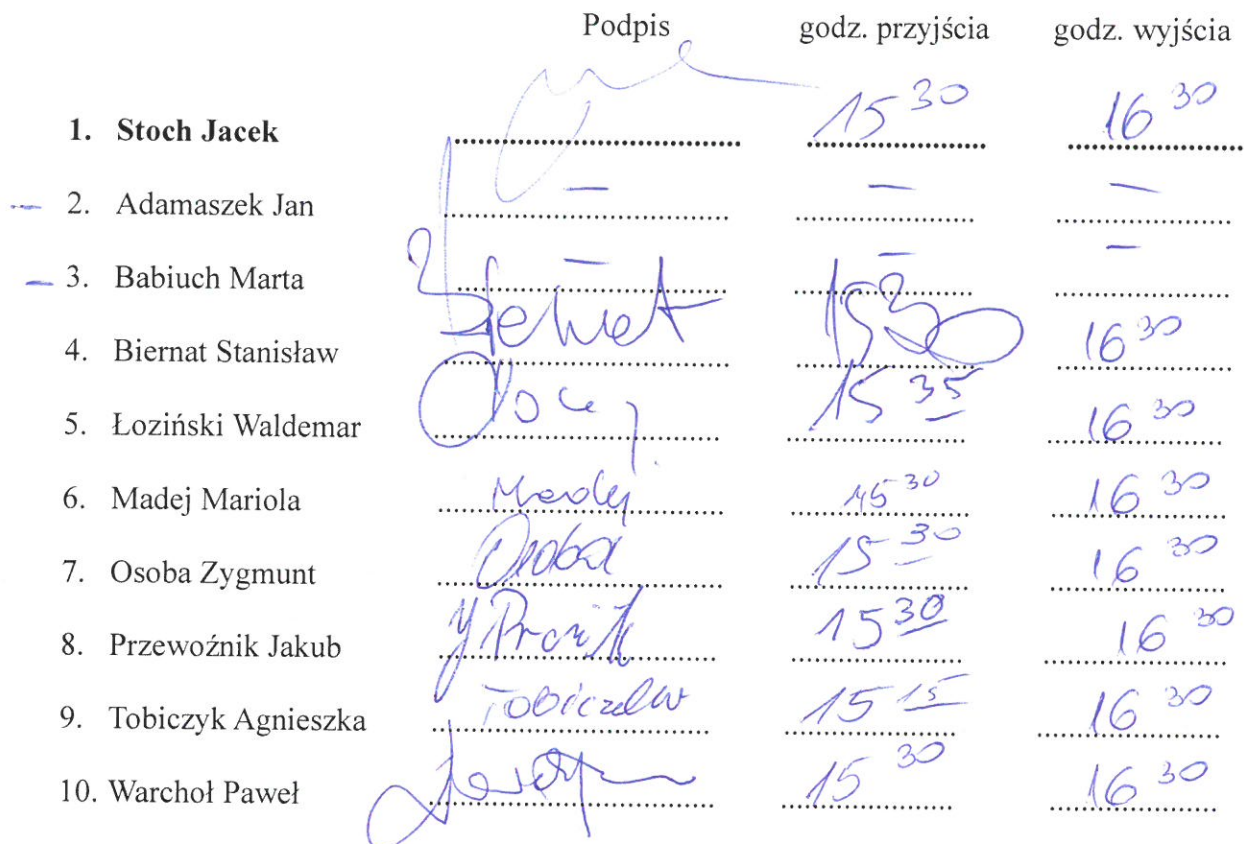 Podpis godz. przyjścia godz. wyjścia
1. Stoch Jacek 15 30 16 30
– 2. Adamaszek Jan – – –
– 3. Babiuch Marta – – –
4. Biernat Stanisław Biernat 15 30 16 30
5. Łoziński Waldemar 15 35 16 30
6. Madej Mariola Madej 15 30 16 30
7. Osoba Zygmunt Osoba 15 30 16 30
8. Przewoźnik Jakub 15 30 16 30
9. Tobiczyk Agnieszka 15 15 16 30
10. Warchoł Paweł 15 30 16 30